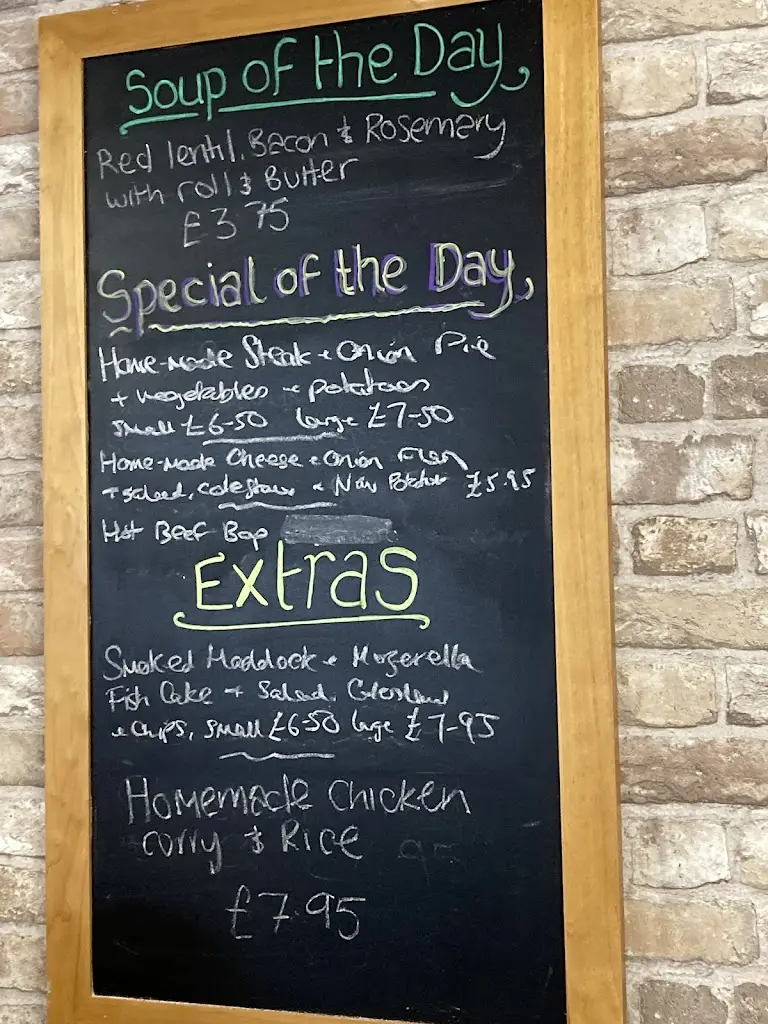 Soup of the Day,
Red lentil, Bacon & Rosemary
with roll & Butter
£3 75
Special of the Day,
Home-made Steak + Onion Pie
+ vegetables + potatoes
small £6-50 large £7-50
Home-made Cheese + Onion Flan
+ salad, coleslaw + New Potatoes £5.95
Hot Beef Bap
Extras
Smoked Haddock + Mozerella
Fish Cake + Salad, Coleslaw
+ chips, small £6-50 large £7-95
Homemade Chicken
curry & Rice
£7.95